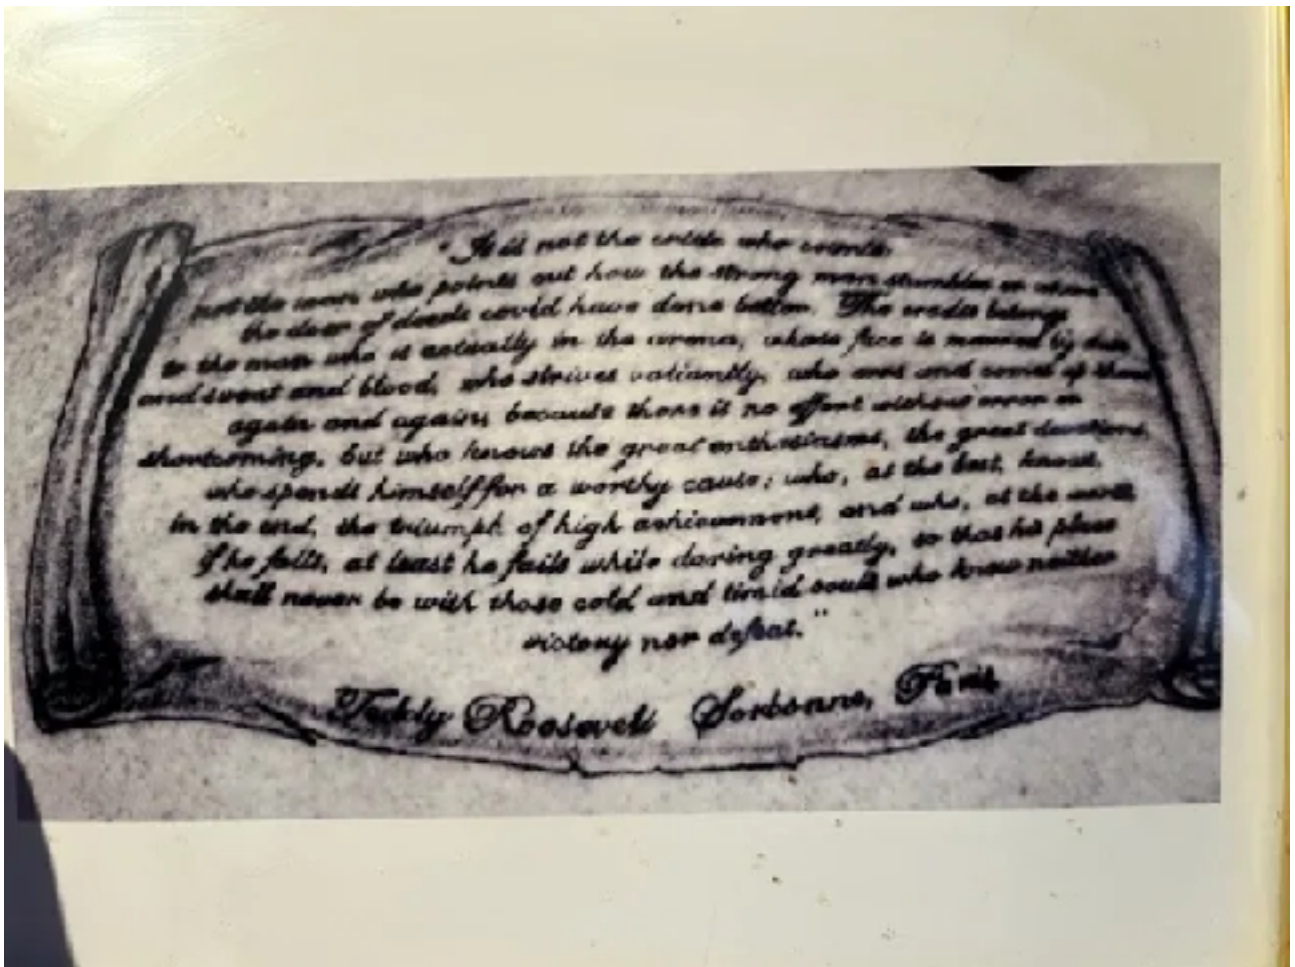 "It is not the critic who counts:
not the man who points out how the strong man stumbles or where
the doer of deeds could have done better. The credit belongs
to the man who is actually in the arena, whose face is marred by dust
and sweat and blood, who strives valiantly, who errs and comes up short
again and again, because there is no effort without error or
shortcoming, but who knows the great enthusiasms, the great devotions,
who spends himself for a worthy cause; who, at the best, knows,
in the end, the triumph of high achievement, and who, at the worst,
if he fails, at least he fails while daring greatly, so that his place
shall never be with those cold and timid souls who knew neither
victory nor defeat."
Teddy Roosevelt Sorbonne, Paris